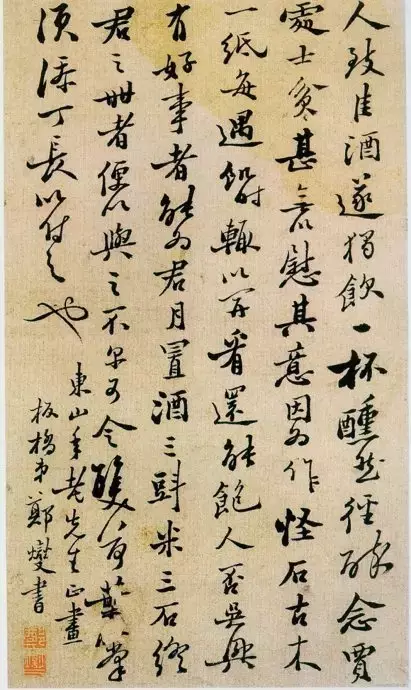 人致佳酒遂獨飲一杯醺然徑醉念賈
處士貧甚無以慰其意因為作怪石古木
一紙每遇飢時輒以開看還能飽人否吳興
有好事者能為君月置酒三㪷米三石終
君之世者便以與之不爾可令雙荷葉掌
須添丁長以付之也
東山年老先生正畫
板橋弟鄭燮書